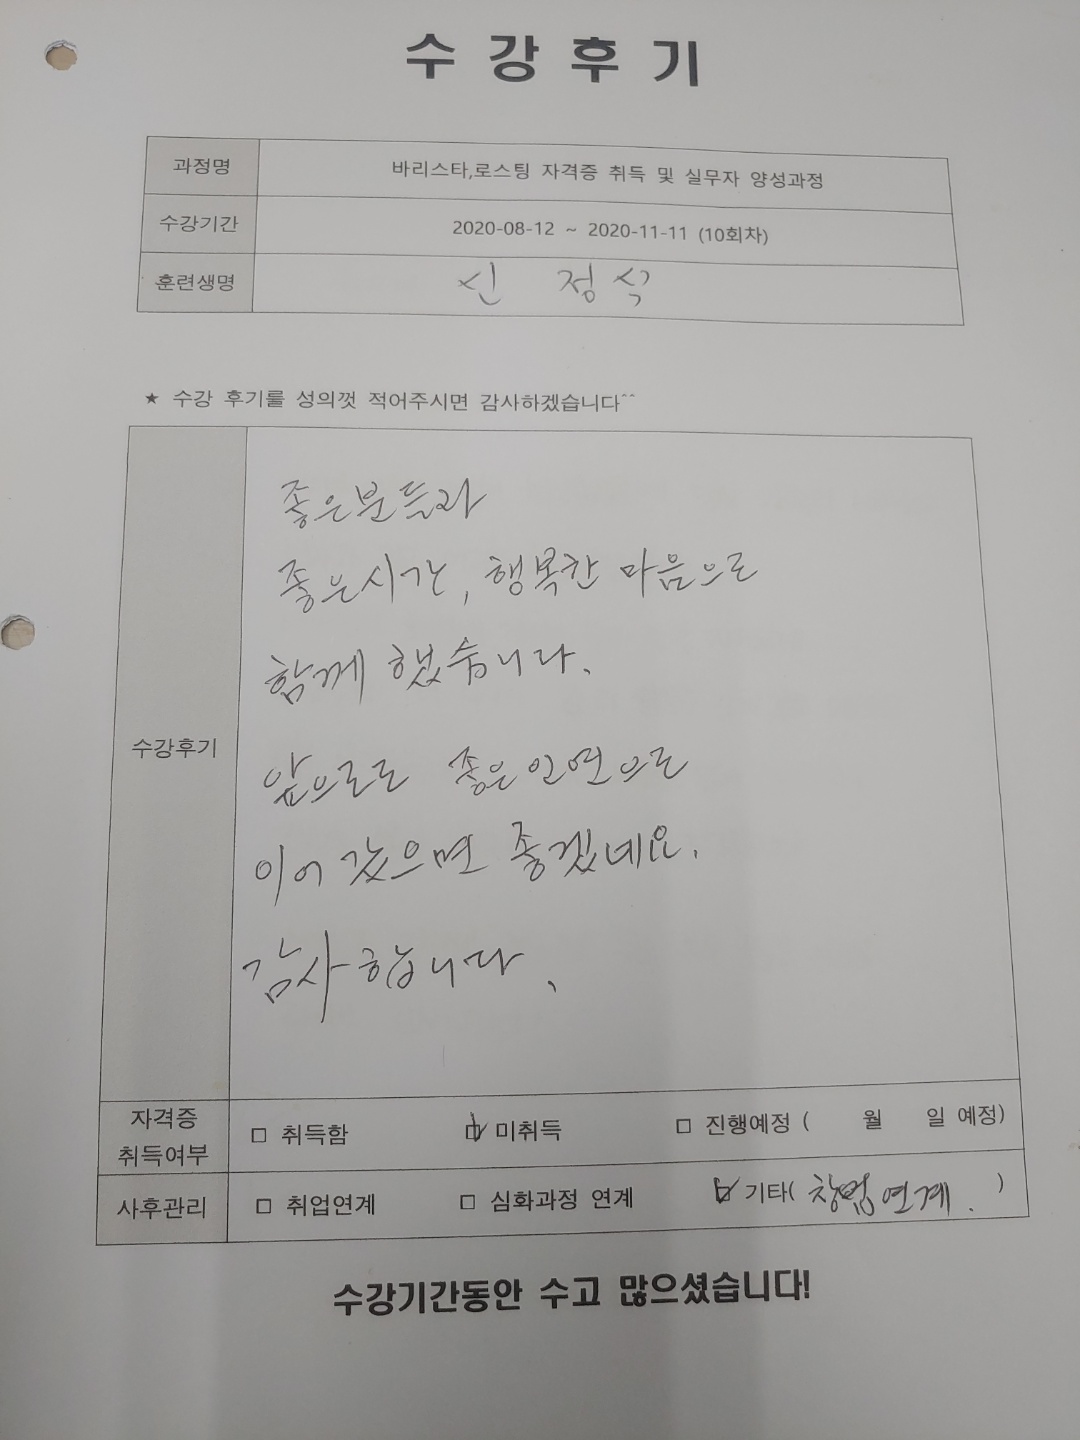 수강후기
과정명 바리스타,로스팅 자격증 취득 및 실무자 양성과정
수강기간 2020-08-12 ~ 2020-11-11 (10회차)
훈련생명 신 정식
★ 수강 후기를 성의껏 적어주시면 감사하겠습니다^^
수강후기
좋은분들과
좋은시간, 행복한 마음으로
함께 했습니다.
앞으로도 좋은인연으로
이어 갔으면 좋겠네요.
감사합니다.
자격증
취득여부
□ 취득함 ☑ 미취득 □ 진행예정 ( 월 일 예정)
사후관리 □ 취업연계 □ 심화과정 연계 ☑ 기타( 창업연계. )
수강기간동안 수고 많으셨습니다!